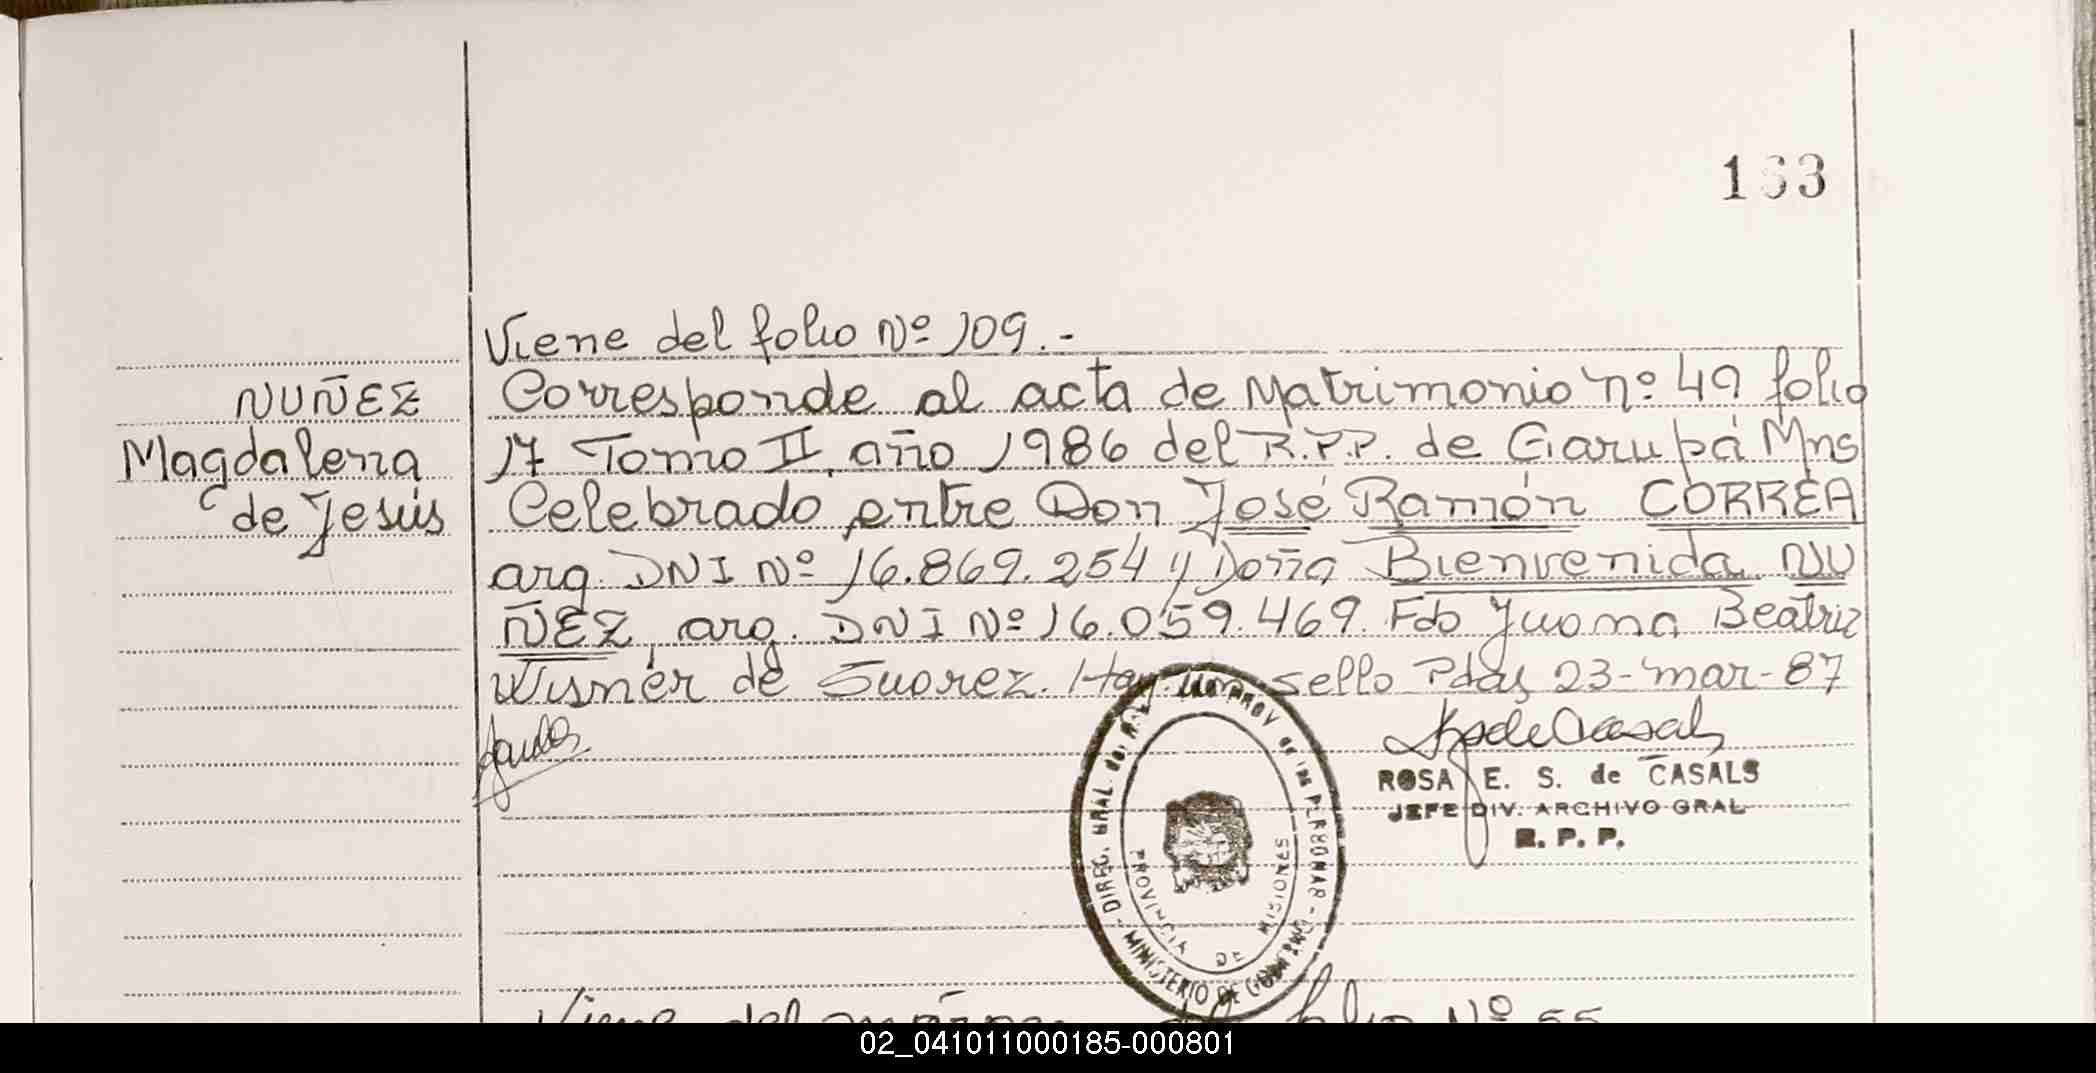 163
Viene del folio Nº 109.-
NUÑEZ
Magdalena
de Jesús
Corresponde al acta de Matrimonio nº 49 folio
17 Tomo II, año 1986 del R.P.P. de Garupá Mns
Celebrado entre Don José Ramón CORREA
arg. DNI Nº 16.869.254 y Doña Bienvenida NU
ÑEZ, arg. DNI Nº 16.059.469. Fdo Juana Beatriz
Wismer de Suarez. Hay un sello Pdas 23-mar-87
ROSA E. S. de CASALS
JEFE DIV. ARCHIVO GRAL
R. P. P.
DIREC. GRAL del REG. PROV de las PERSONAS - MINISTERIO DE GOBIERNO
PROVINCIA DE MISIONES
Viene del márgen del folio Nº 55
02_041011000185-000801